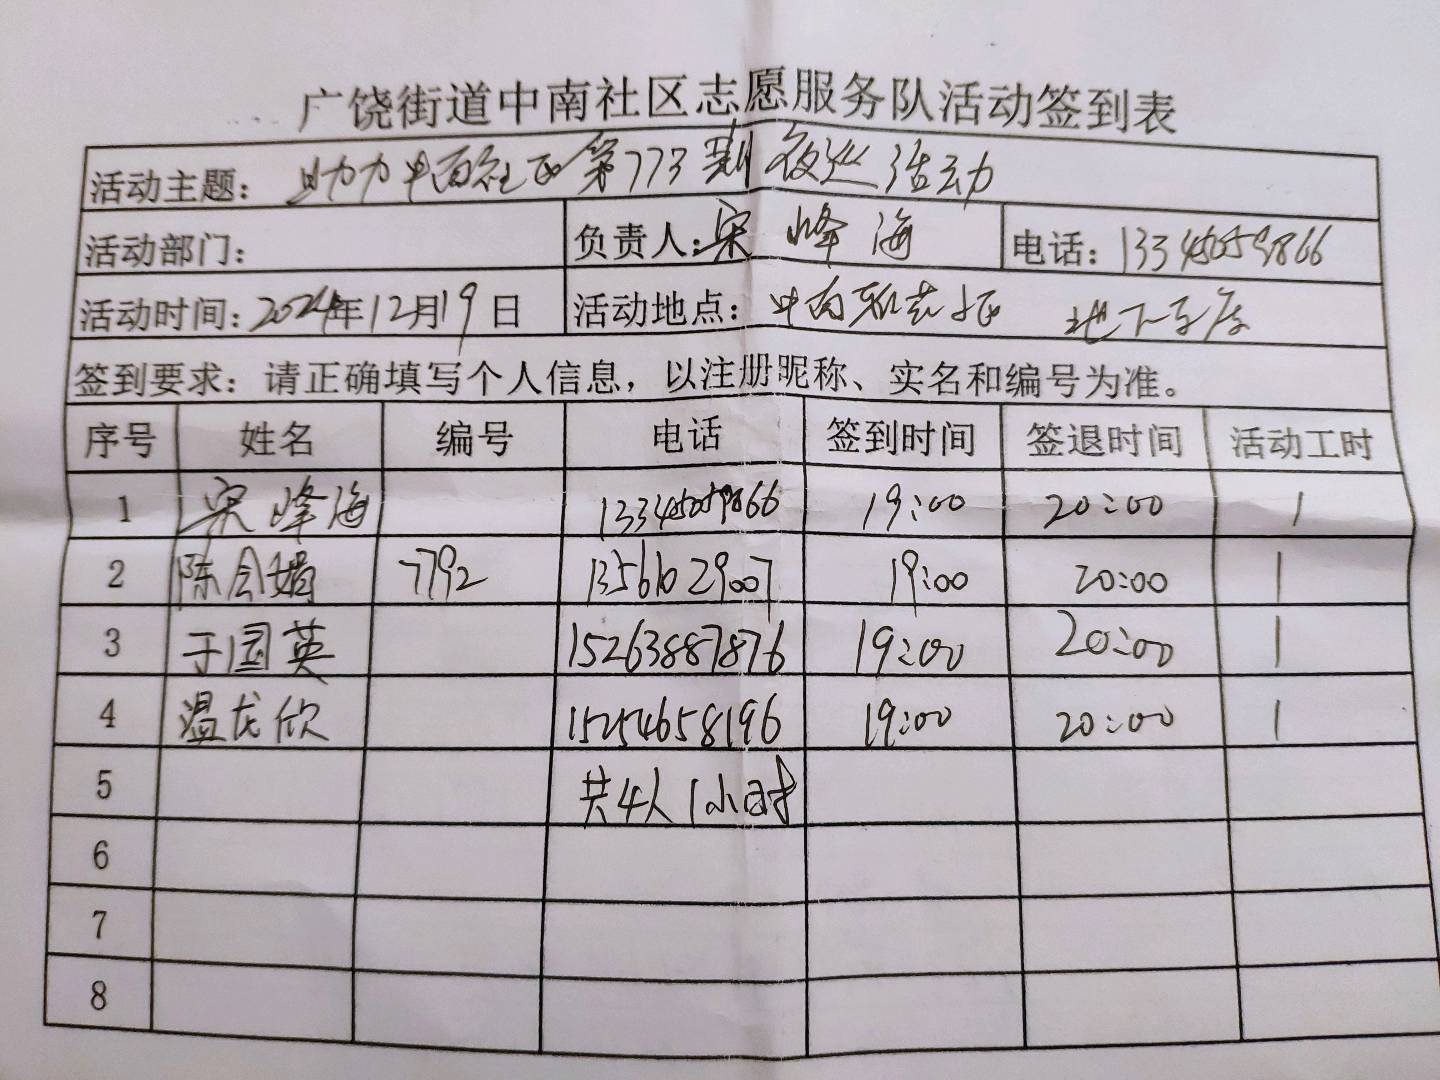 广饶街道中南社区志愿服务队活动签到表
活动主题: 助力中南社区第773期夜巡活动
活动部门: 负责人:宋峰海 电话:13345059866
活动时间:2024年12月19日 活动地点: 中南 社区 地下车库
签到要求:请正确填写个人信息,以注册昵称、实名和编号为准。
序号 姓名 编号 电话 签到时间 签退时间 活动工时
1 宋峰海 13345059866 19:00 20:00 1
2 陈会娟 7792 13561029007 19:00 20:00 1
3 于国英 15263887876 19:00 20:00 1
4 温龙欣 15254658196 19:00 20:00 1
5 共4人1小时
6
7
8